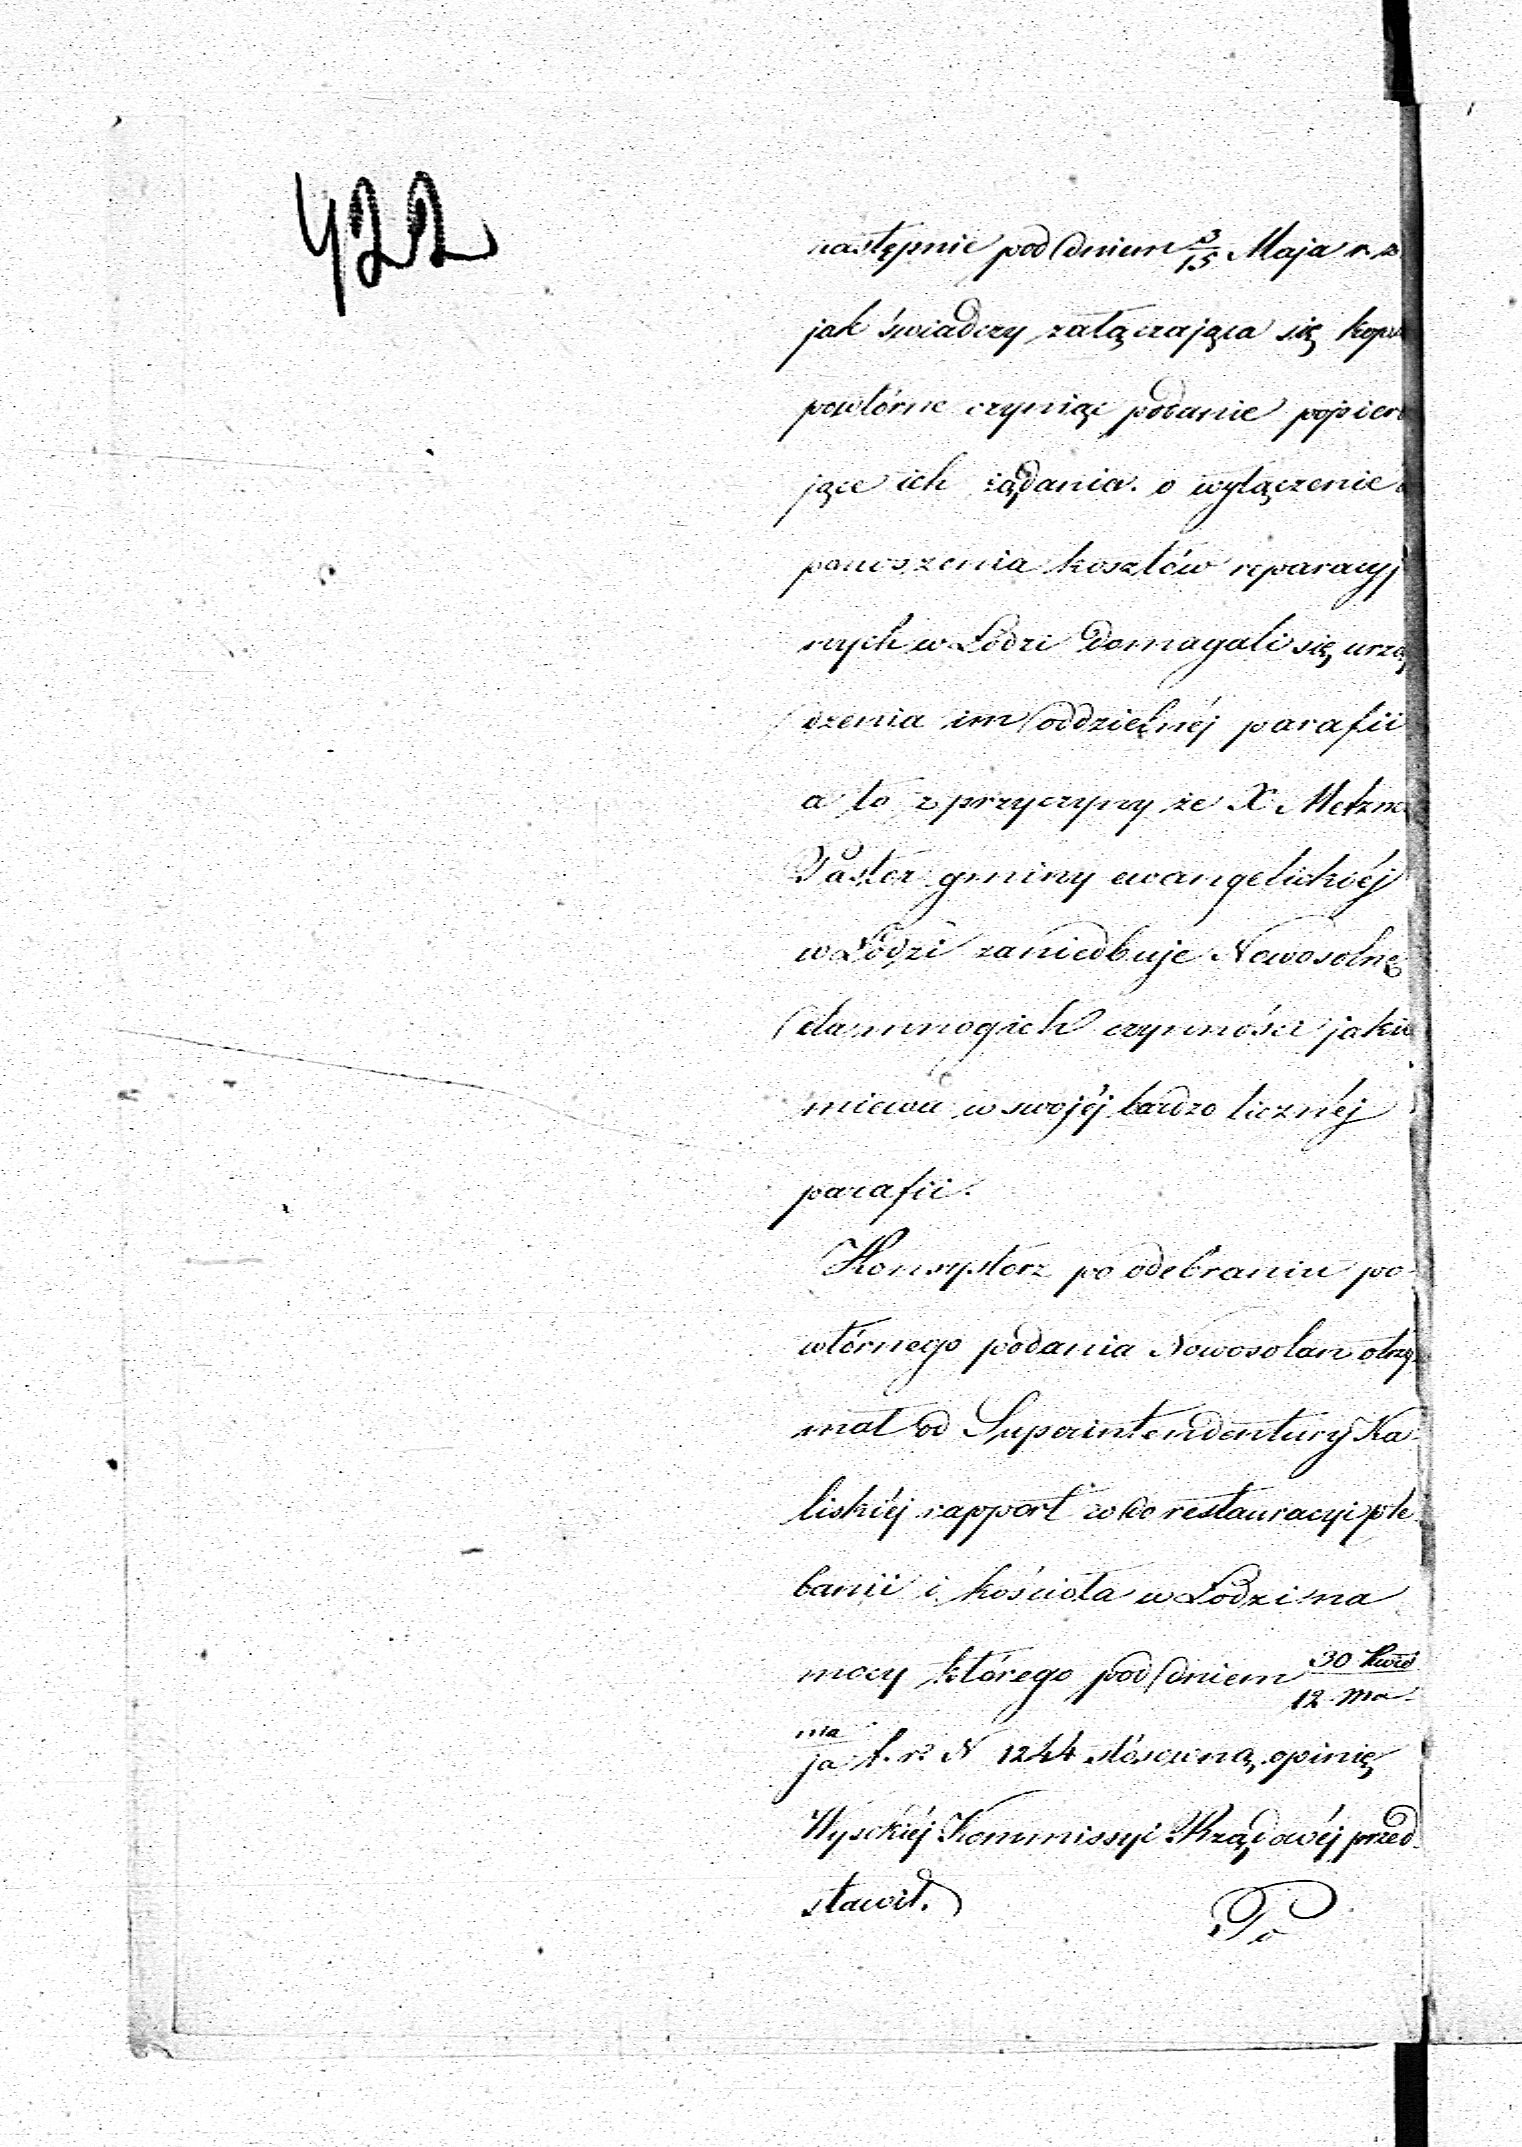 422
następnie pod dniem 3/15 Maja r. z
jak świadczy załączająca się kopi
powtórne czyniąc podanie popiera
jące ich żądania o wyłączenie
ponoszenia kosztów reparacyj
nych w Łodzi domagali się urzą
dzenia im oddzielnéj parafii
a to z przyczyny że X Metzne
Pastor gminy ewangelickiéj
w Łodzi zaniedbuje Nowosolnę
dla mnogich czynności jakie
miewa w swojéj bardzo licznéj
parafii.
Konsystorz po odebraniu po
wtórnego podania Nowosolan otrzy
mał od Superintendentury Ka-
liskiéj rapport co do restauracyi ple
banii i kościoła w Łodzi na
mocy którego pod dniem 30 Kwie / 12 Ma-
ma
ja t. r. N 1244 stósowną opinię
Wysokiéj Kommissyi Rządowéj przed-
stawił.
Po